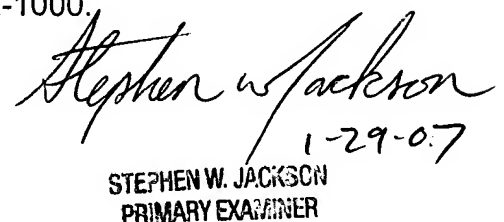 -1000.
Stephen W Jackson
1-29-07
STEPHEN W. JACKSON
PRIMARY EXAMINER